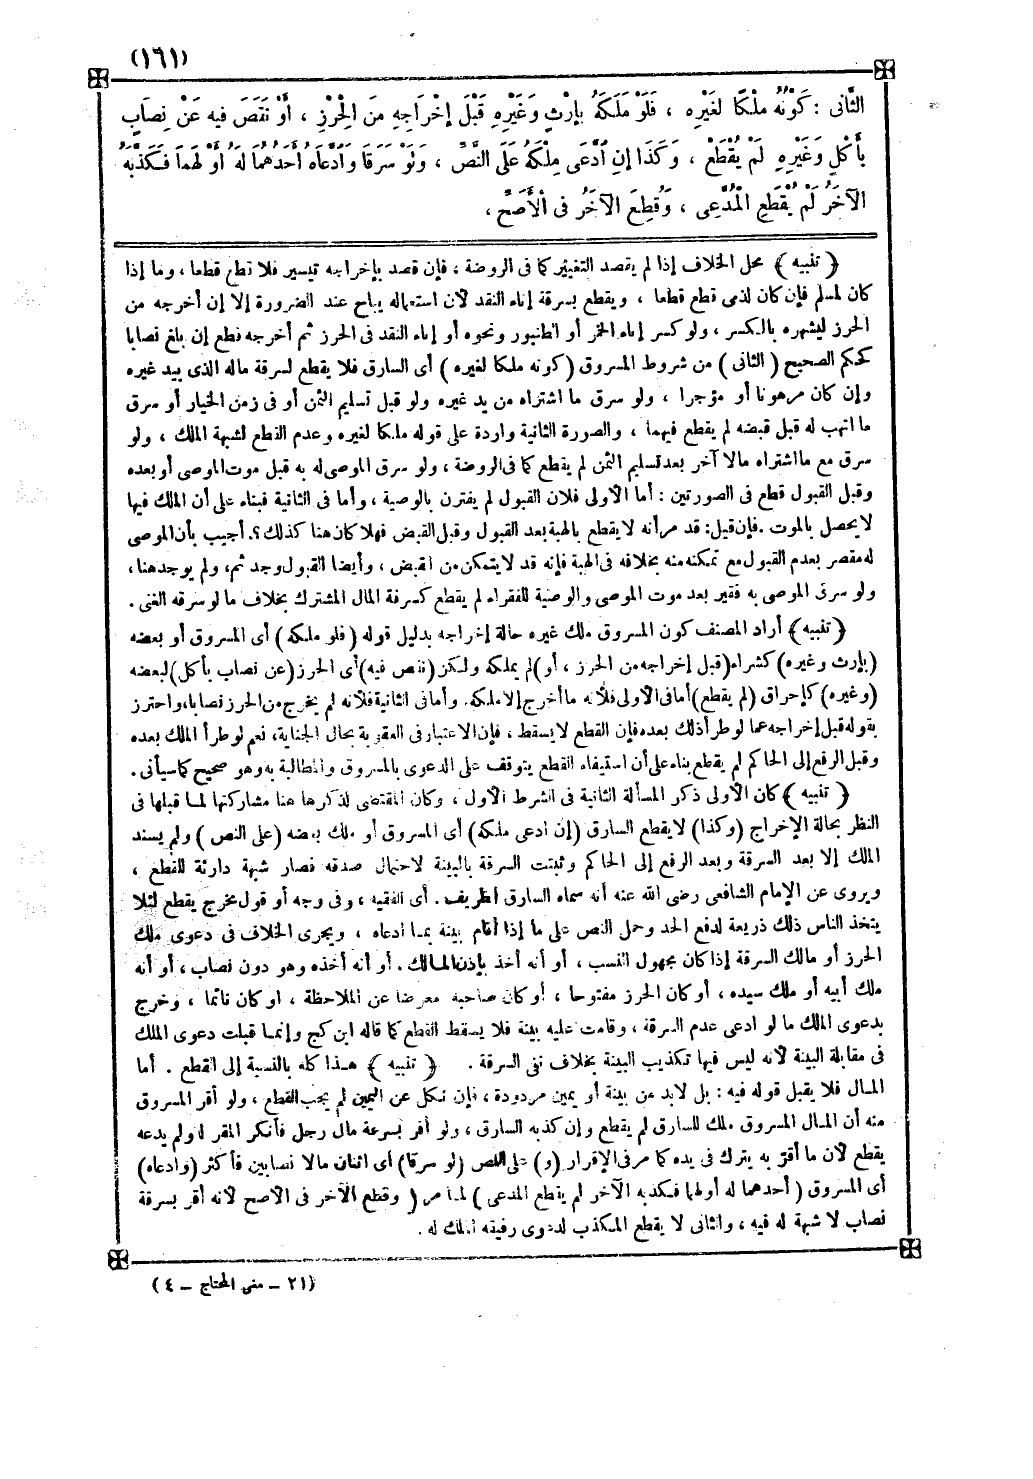 (١٦١)
الثَّانِى : كَوْنُهُ مِلْكًا لِغَيْرِهِ ، فَلَوْ مَلَكَهُ بِإِرْثٍ وَغَيْرِهِ قَبْلَ إِخْرَاجِهِ مِنَ الْحِرْزِ ، أَوْ نَقَصَ فيه عَنْ نِصَابٍ
بِأَكْلٍ وَغَيْرِهِ لَمْ يُقْطَعْ ، وَكَذَا إِنِ ادَّعَى مِلْكَهُ عَلَى النَّصِّ ، وَلَوْ سَرَقَا وَادَّعَاهُ أَحَدُهُمَا لَهُ أَوْ لَهُمَا فَكَذَّبَهُ
الآخَرُ لَمْ يُقْطَعِ الْمُدَّعِى ، وَقُطِعَ الآخَرُ فى الْأَصَحِّ ،
﴿ تنبيه ﴾ محل الخلاف إذا لم يقصد التغيير كما فى الروضة ، فإن قصد بإخراجه تيسير فلا قطع قطعا ، وما إذا
كان لمسلم فإن كان لذمى قطع قطعا ، ويقطع بسرقة إناء النقد لأن استعماله يباح عند الضرورة إلا إن أخرجه من
الحرز ليشهره بالكسر ، ولو كسر إناء الخمر أو الطنبور ونحوه أو إناء النقد فى الحرز ثم أخرجه قطع إن بلغ نصابا
كحكم الصحيح ( الثانى ) من شروط المسروق (كونه ملكا لغيره ) أى السارق فلا يقطع لسرقة ماله الذى بيد غيره
وإن كان مرهونا أو مؤجرا ، ولو سرق ما اشتراه من يد غيره ولو قبل تسليم الثمن أو فى زمن الخيار أو سرق
ما اتهب له قبل قبضه لم يقطع فيهما ، والصورة الثانية واردة على قوله ملكا لغيره وعدم القطع لشبهة الملك ، ولو
سرق مع ما اشتراه مالا آخر بعد تسليم الثمن لم يقطع كما فى الروضة ، ولو سرق الموصى له به قبل موت الموصى أو بعده
وقبل القبول قطع فى الصورتين : أما الأولى فلأن القبول لم يقترن بالوصية ، وأما فى الثانية فبناء على أن الملك فيها
لا يحصل بالموت . فإن قيل : قد مر أنه لا يقطع بالهبة بعد القبول وقبل القبض فهلا كان هنا كذلك ؟. أجيب بأن الموصى
له مقصر بعدم القبول مع تمكنه منه بخلافه فى الهبة فإنه قد لا يتمكن من القبض ، وأيضا القبول وجد ثم ، ولم يوجد هنا ،
ولو سرق الموصى به فقير بعد موت الموصى والوصية للفقراء لم يقطع كسرقة المال المشترك بخلاف ما لو سرقه الغنى .
﴿ تنبيه ﴾ أراد المصنف كون المسروق ملك غيره حالة إخراجه بدليل قوله (فلو ملكه ) أى المسروق أو بعضه
(بإرث وغيره) كشراء (قبل إخراجه من الحرز ، أو) لم يملكه ولكن (نقص فيه) أى الحرز (عن نصاب بأكل) لبعضه
(وغيره) كإحراق (لم يقطع) أما فى الأولى فلأنه ما أخرج إلا ملكه. وأما فى الثانية فلأنه لم يخرج من الحرز نصابا، واحترز
بقوله قبل إخراجه عما لو طرأ ذلك بعده فإن القطع لا يسقط ، فإن الاعتبار فى العقوبة بحال الجناية، نعم لو طرأ الملك بعده
وقبل الرفع إلى الحاكم لم يقطع بناء على أن استيفاء القطع يتوقف على الدعوى بالمسروق والمطالبة به وهو صحيح كما سيأتى .
﴿ تنبيه ﴾ كان الأولى ذكر المسألة الثانية فى الشرط الأول ، وكان المقتضى لذكرها هنا مشاركتها لما قبلها فى
النظر بحالة الإخراج (وكذا) لا يقطع السارق (إن ادعى ملكه) أى المسروق أو ملك بعضه (على النص ) ولم يسند
الملك إلا بعد السرقة وبعد الرفع إلى الحاكم وثبتت السرقة بالبينة لاحتمال صدقه فصار شبهة دارئة للقطع ،
ويروى عن الإمام الشافعى رضى الله عنه أنه سماه السارق الظريف . أى الفقيه ، وفى وجه أو قول مخرج يقطع لئلا
يتخذ الناس ذلك ذريعة لدفع الحد وحمل النص على ما إذا أقام بينة بما ادعاه ، ويجرى الخلاف فى دعوى ملك
الحرز أو مالك السرقة إذا كان مجهول النسب ، أو أنه أخذ بإذن المالك . أو أنه أخذه وهو دون نصاب ، أو أنه
ملك أبيه أو ملك سيده ، أو كان الحرز مفتوحا ، أو كان صاحبه معرضا عن الملاحظة ، أو كان نائما ، وخرج
بدعوى الملك ما لو ادعى عدم السرقة ، وقامت عليه بينة فلا يسقط القطع كما قاله ابن كج وإنما قبلت دعوى الملك
فى مقابلة البينة لأنه ليس فيها تكذيب البينة بخلاف نفى السرقة . ﴿ تنبيه ﴾ هذا كله بالنسبة إلى القطع . أما
المال فلا يقبل قوله فيه : بل لابد من بينة أو يمين مردودة ، فإن نكل عن اليمين لم يجب القطع ، ولو أقر المسروق
منه أن المال المسروق ملك للسارق لم يقطع وإن كذبه السارق ، ولو أقر بسرقة مال رجل فأنكر المقر له ولم يدعه
يقطع لأن ما أقر به يترك فى يده كما مر فى الإقرار (و) على النص (لو سرقا) أى اثنان مالا نصابين فأكثر (وادعاه)
أى المسروق ( أحدهما له أو لهما فكذبه الآخر لم يقطع المدعى ) لما مر ( وقطع الآخر فى الأصح لأنه أقر بسرقة
نصاب لا شبهة له فيه ، والثانى لا يقطع المكذب لدعوى رفيقه الملك له .
(٢١ - مغنى المحتاج - ٤ )